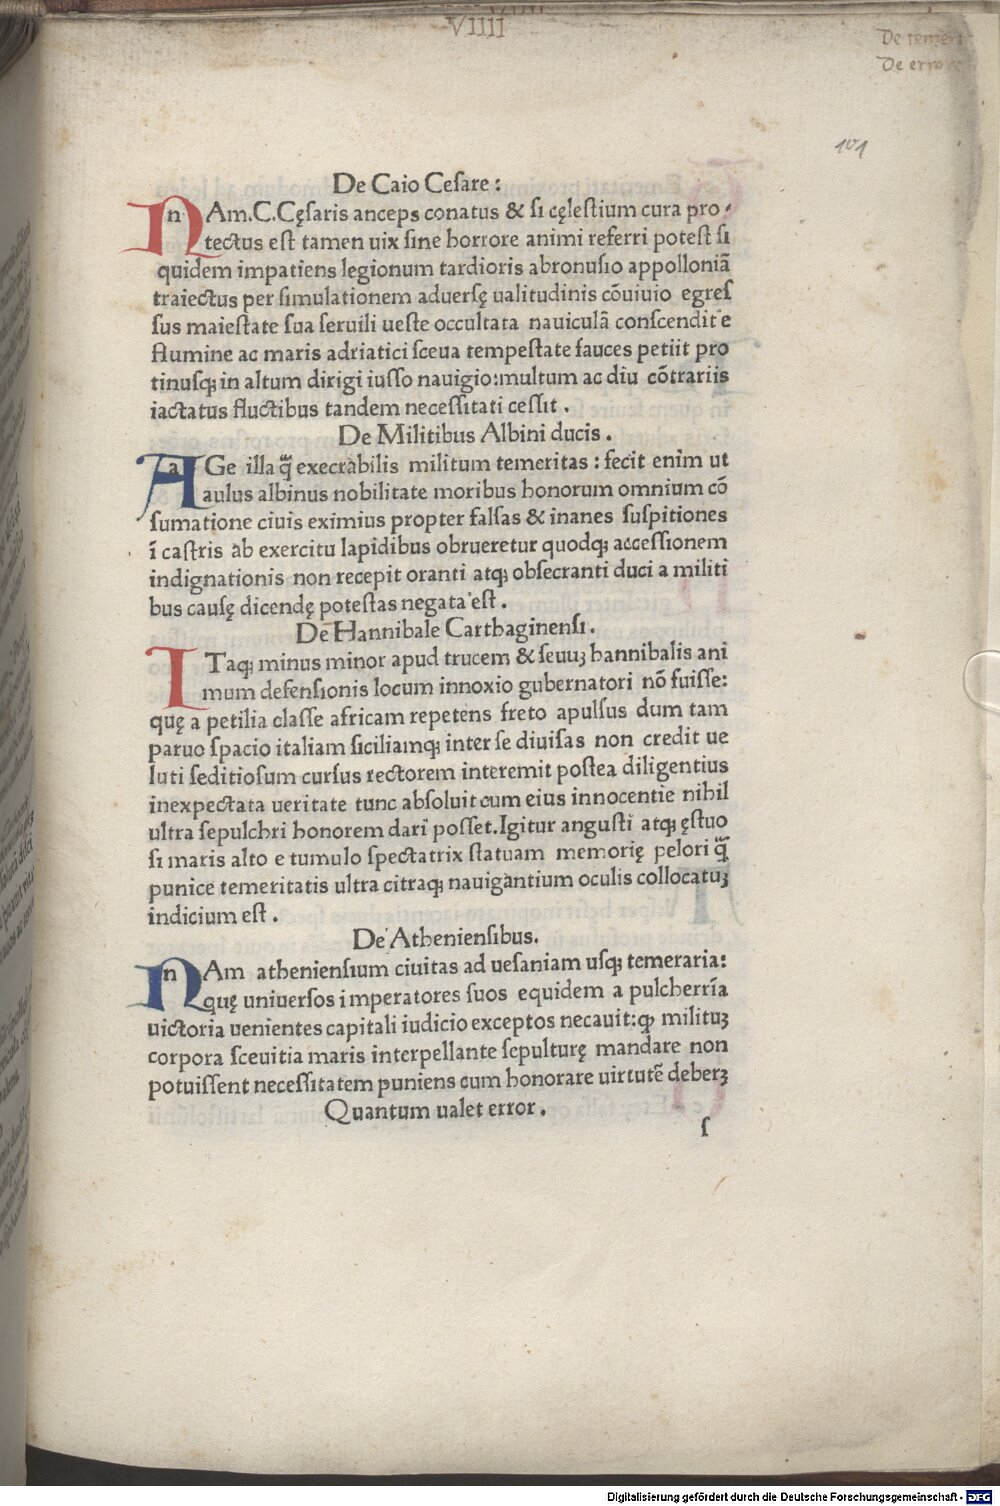 VIIII
De temeri
De errore
101
De Caio Ceſare :
NAm.C.Cęſaris anceps conatus & ſi cęleſtium cura pro
tectus eſt tamen uix ſine horrore animi referri poteſt ſi
quidem impatiens legionum tardioris abronuſio appolloniã
traiectus per ſimulationem aduerſę ualitudinis cõuiuio egreſ
ſus maieſtate ſua ſeruili ueſte occultata nauiculã conſcendit e
flumine ac maris adriatici ſceua tempeſtate fauces petiit pro
tinuſqꝫ in altum dirigi iuſſo nauigio:multum ac diu cõtrariis
iactatus fluctibus tandem neceſſitati ceſſit .
De Militibus Albini ducis .
AGe illa q̃ execrabilis militum temeritas : fecit enim ut
aulus albinus nobilitate moribus honorum omnium cõ
ſumatione ciuis eximius propter falſas & inanes ſuſpitiones
ĩ caſtris ab exercitu lapidibus obrueretur quodqꝫ acceſſionem
indignationis non recepit oranti atqꝫ obſecranti duci a militi
bus cauſę dicendę poteſtas negata eſt .
De Hannibale Carthaginenſi .
ITaqꝫ minus minor apud trucem & ſeuuꝫ hannibalis ani
mum defenſionis locum innoxio gubernatori nõ fuiſſe:
quę a petilia claſſe africam repetens freto apulſus dum tam
paruo ſpacio italiam ſiciliamqꝫ inter ſe diuiſas non credit ue
luti ſeditioſum curſus rectorem interemit poſtea diligentius
inexpectata ueritate tunc abſoluit cum eius innocentie nihil
ultra ſepulchri honorem dari poſſet.Igitur anguſti atqꝫ ęſtuo
ſi maris alto e tumulo ſpectatrix ſtatuam memorię pelori q̃
punice temeritatis ultra citraqꝫ nauigantium oculis collocatuꝫ
indicium eſt .
De Athenienſibus.
NAm athenienſium ciuitas ad ueſaniam uſqꝫ temeraria:
quę uniuerſos imperatores ſuos equidem a pulcherrĩa
uictoria uenientes capitali iudicio exceptos necauit:ꝙ milituꝫ
corpora ſceuitia maris interpellante ſepulturę mandare non
potuiſſent neceſſitatem puniens cum honorare uirtutẽ deberꝫ
Quantum ualet error .
ſ
Digitalisierung gefördert durch die Deutsche Forschungsgemeinschaft - DFG